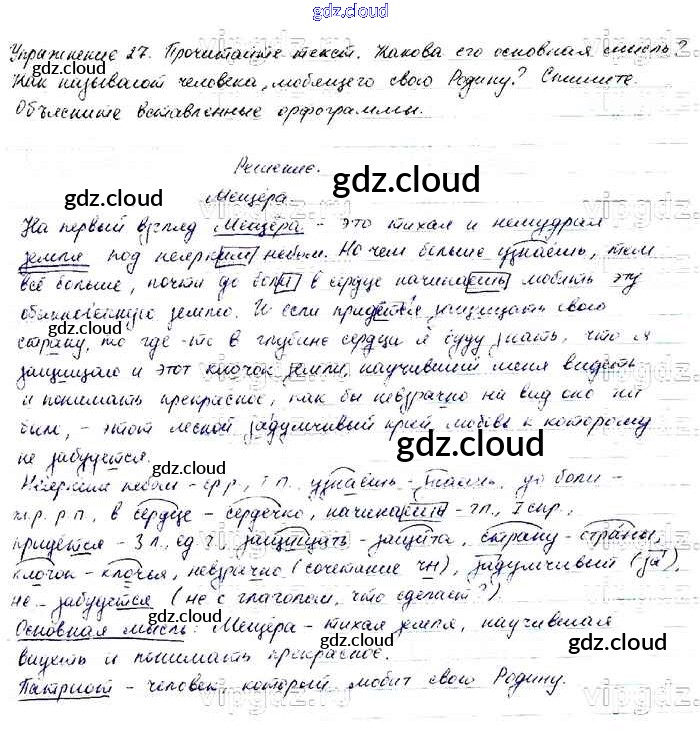 gdz.cloud
Упражнение 27. Прочитайте текст. Какова его основная мысль?
Как называют человека, любящего свою Родину? Спишите.
Объясните вставленные орфограммы.
Решение.
gdz.cloud
gdz.cloud
Мещёра.
На первый взгляд Мещёра - это тихая и немудрая
земля под неярким небом. Но чем больше узнаёшь, тем
всё больше, почти до боли в сердце начинаешь любить эту
обыкновенную землю. И если придётся защищать свою
gdz.cloud
gdz.cloud
страну, то где-то в глубине сердца я буду знать, что я
защищаю и этот клочок земли, научивший меня видеть
и понимать прекрасное, как бы невзрачно на вид оно ни
был, - этот лесной задумчивый край, любовь к которому
не забудется.
gdz.cloud
gdz.cloud
Неярким небом - ср.р., т.п., узнаёшь - знать, до боли -
ж.р. р.п., в сердце - сердечко, начинаешь - 2л., I спр.,
придётся - 3 л., ед.ч., защищать - защита, страну - страны,
gdz.cloud
gdz.cloud
клочок - клочья, невзрачно (сочетание чн), задумчивый (за),
не забудется (не с глаголом, что сделает?)
Основная мысль: Мещёра - тихая земля, научившая
gdz.cloud
gdz.cloud
видеть и понимать прекрасное.
Патриот - человек, который любит свою Родину.
vipgdz.ru
gdz.cloud